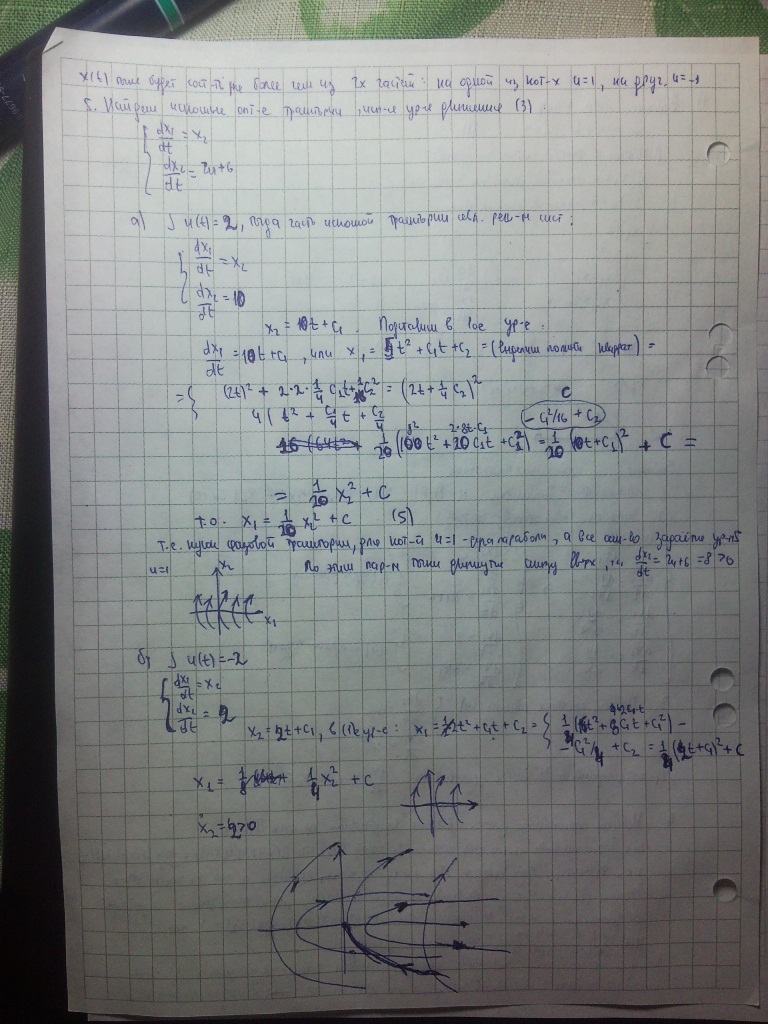 x(t) будет сост-ть не более чем из 2х частей: на одной из кот-х u=1, на друг. u=-1
5. Найдем искомые опт-е траектории, исп-я ур-е движения (3).
{ dx₁/dt = x₂
dx₂/dt = 2u+6
а) ] u(t)=2, тогда часть искомой траектории явл. реш-м сист:
{ dx₁/dt = x₂
dx₂/dt = 10
x₂ = 10t + C₁. Подставим в 1ое ур-е:
dx₁/dt = 10t + C₁, или x₁ = 5t² + C₁t + C₂ = (выделим полный квадрат) =
= { (2t)² + 2·2·1/4 C₁t + 1/16 C₂² = (2t + 1/4 C₂)²
4(t² + C₁/4 t + C₂/4
C
-C₁²/16 + C₂
1/20 (100t² + 20C₁t + C₁²) = 1/20 (10t + C₁)² + C =
= 1/20 x₂² + C
т.о. x₁ = 1/20 x₂² + C (5)
т.е. кусок фазовой траектории, для кот-й u=1 - дуга параболы, а все сем-во задаётся ур-м 5
u=1 По этим пар-м точки движутся снизу вверх, т.к. dx₂/dt = 2u+6 = 8 > 0
x₂
x₁
б) ] u(t) = -2
{ dx₁/dt = x₂
dx₂/dt = 2
x₂ = 2t + C₁, в 1ое ур-е: x₁ = t² + C₁t + C₂ = {
- C₁²/4 + C₂ = 1/4 (2t + C₁)² + C
x₁ = 1/4 x₂² + C
ẋ₂ = 2 > 0